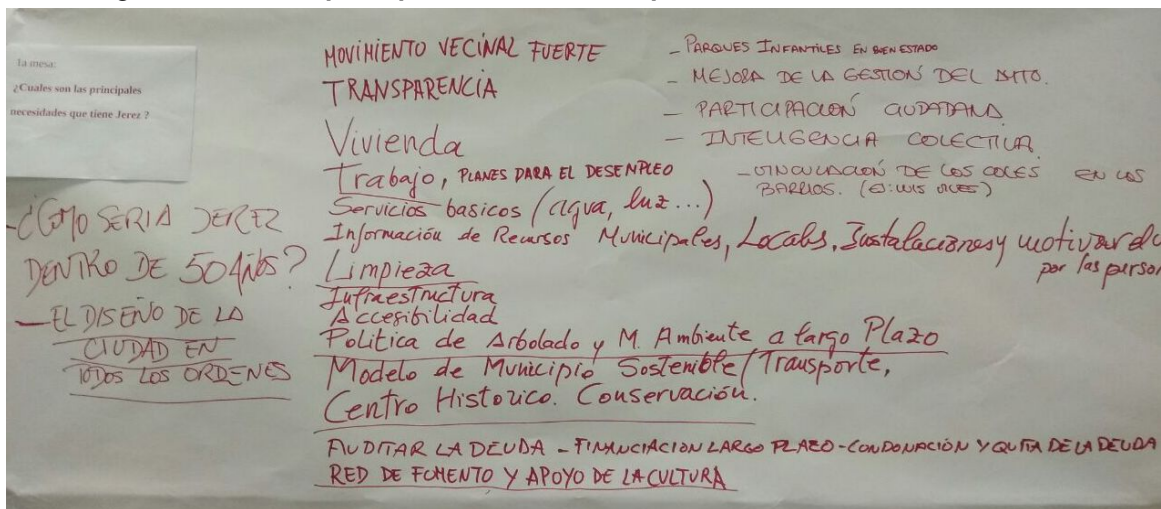 1a mesa:
¿Cuales son las principales
necesidades que tiene Jerez ?
-¿COMO SERIA JEREZ
DENTRO DE 50 AÑOS?
- EL DISEÑO DE LA
CIUDAD EN
TODOS LOS ORDENES
MOVIMIENTO VECINAL FUERTE
TRANSPARENCIA
Vivienda
Trabajo, PLANES PARA EL DESEMPLEO
Servicios basicos (agua, luz...)
Información de Recursos Municipales, Locales, Instalaciones y motivar
por las person
Limpieza
Infraestructura
Accesibilidad
Politica de Arbolado y M. Ambiente a largo Plazo
Modelo de Municipio Sostenible/Transporte,
Centro Historico. Conservación.
AUDITAR LA DEUDA - FINANCIACION LARGO PLAZO - CONDONACIÓN Y QUITA DE LA DEUDA
RED DE FOMENTO Y APOYO DE LA CULTURA
- PARQUES INFANTILES EN BUEN ESTADO
- MEJORA DE LA GESTIÓN DEL AYTO.
- PARTICIPACIÓN CIUDADANA
- INTELIGENCIA COLECTIVA
- VINCULACIÓN DE LOS COLES EN LOS
BARRIOS. (EJ: LUIS VIVES)